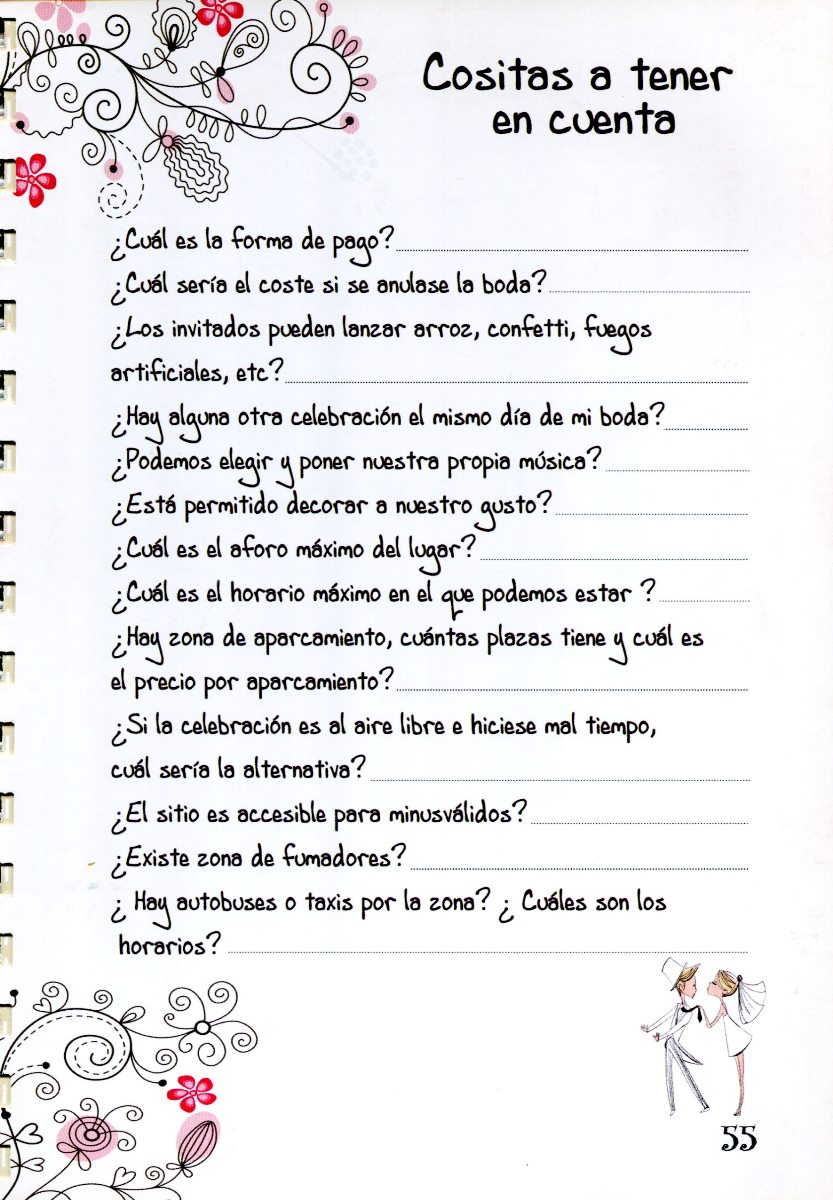 Cositas a tener
en cuenta
¿Cuál es la forma de pago?
¿Cuál sería el coste si se anulase la boda?
¿Los invitados pueden lanzar arroz, confetti, fuegos
artificiales, etc?
¿Hay alguna otra celebración el mismo día de mi boda?
¿Podemos elegir y poner nuestra propia música?
¿Está permitido decorar a nuestro gusto?
¿Cuál es el aforo máximo del lugar?
¿Cuál es el horario máximo en el que podemos estar ?
¿Hay zona de aparcamiento, cuántas plazas tiene y cuál es
el precio por aparcamiento?
¿Si la celebración es al aire libre e hiciese mal tiempo,
cuál sería la alternativa?
¿El sitio es accesible para minusválidos?
¿Existe zona de fumadores?
¿ Hay autobuses o taxis por la zona? ¿ Cuáles son los
horarios?
55